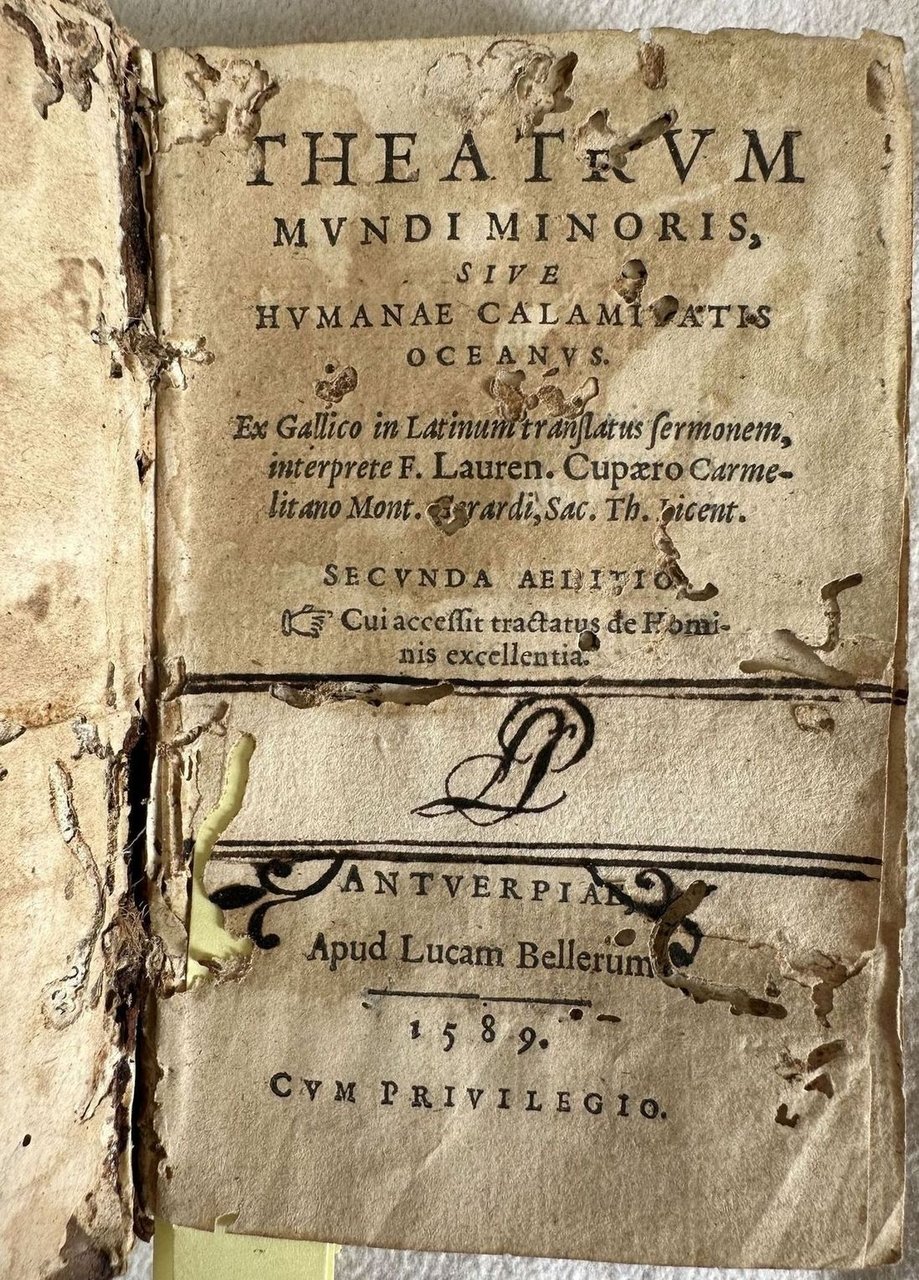 THEATRVM
MVNDI MINORIS,
SIVE
HVMANAE CALAMITATIS
OCEANVS.
Ex Gallico in Latinum tranſlatus ſermonem,
interprete F. Lauren. Cupæro Carme-
litano Mont. Gerardi, Sac. Th. Licent.
SECVNDA AEDITIO
☞ Cui acceſſit tractatus de Homi-
nis excellentia.
ANTVERPIAE,
Apud Lucam Bellerum
1589.
CVM PRIVILEGIO.